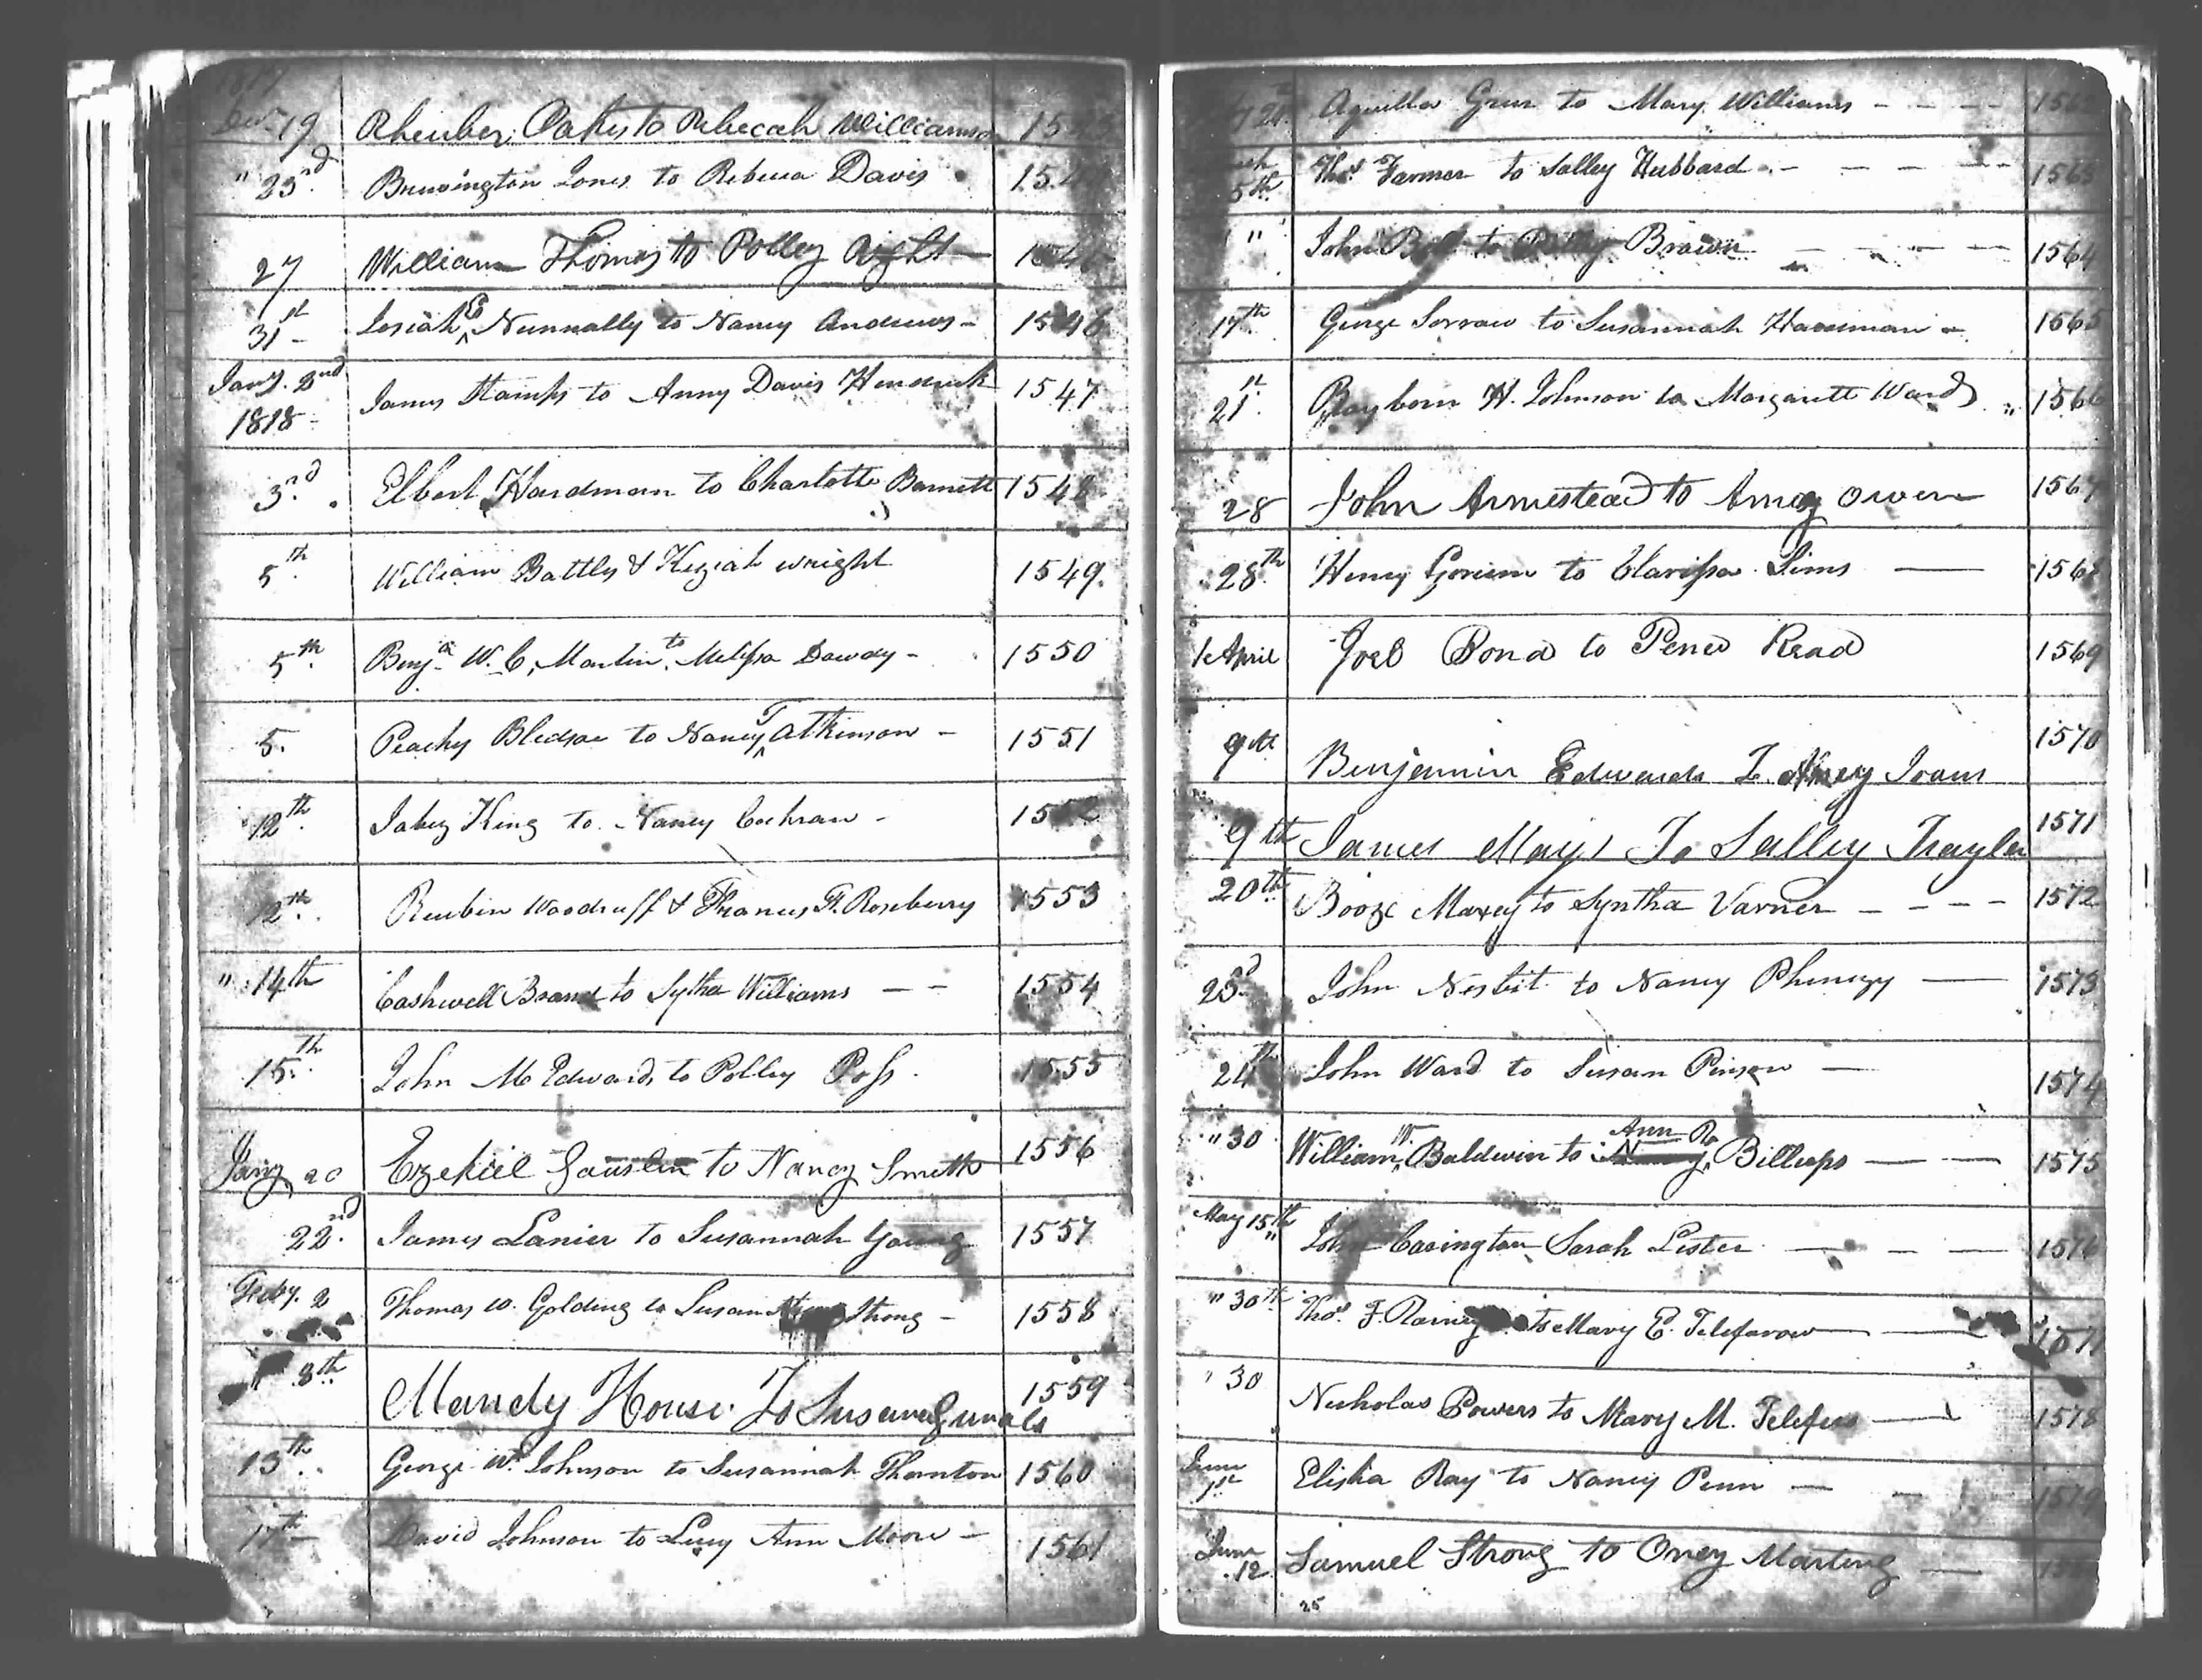 1817
Decr. 19 Rheuben Oakes to Rebecah Williamson 15
" 23rd. Brewington Jones to Rebecca Davis 15
27 William Thomas to Polley 154
31st Josiah E Nunnally to Nancy Andrews - 1546
Jany. 2nd 1818 - James Stamps to Anny Davis Hendrick 1547
3rd. Elbert Hardman to Charlotte Barnett 1548
5th. William Battles & Keziah wright 1549.
5th. Benja W. C. Martin to Melissa Dowdy - 1550
5. Peachy Bledsoe to Nancy T Atkinson - 1551
12th. Jabez King to Nancy Cochran - 1552
12th. Reubin Woodruff & Frances F. Roseberry 1553
" 14th Cashwell Brand to Sytha Williams - - 1554
15.th John M Edwards to Polley Poss. 1555
Jany 20 Ezekiel to Nancy Smith 1556
22nd. James Lanier to Susannah Young 1557
Feby. 2 Thomas W. Golding to Susan Strong - 1558
8th. Mandy House. To Susana 1559
13th. George W. Johnson to Susannah Thornton 1560
17th David Johnson to Lucy Ann Moore - 1561
21 Aquilla Green to Mary Williams - - - - 156
5th. Thos. Farmer to Salley Hubbard. - - - - 1563
" John to Brown - - - - - 1564
17th. George Sorrow to Susannah - 1565
21st. H. Johnson to Margarett Ward 1566
28 John Armestead to Amey Owen 1567
28th. Henry to Clarissa Sims — 1568
1 April Joel Bond to Read 1569
9th Benjamin Edwards To 1570
9th James Mays To Salley Traylor 1571
20th Booze Maxey to Syntha Varner - - - - 1572
23d John Nesbit to Nancy Phinizy — 1573
24th John Ward to Susan Pinson — 1574
" 30 William W. Baldwin to Ann R. Billups — — 1575
May 15th John Carington Sarah Lester — - — 1576
" 30th Thos. F. Rainey to Mary E. Telefarow — — 1577
" 30 Nicholas Powers to Mary M. — 1578
June 1st Elisha Ray to Nancy Penn — - 1579
June 12 Samuel Strong to Oney Marting — 15
25